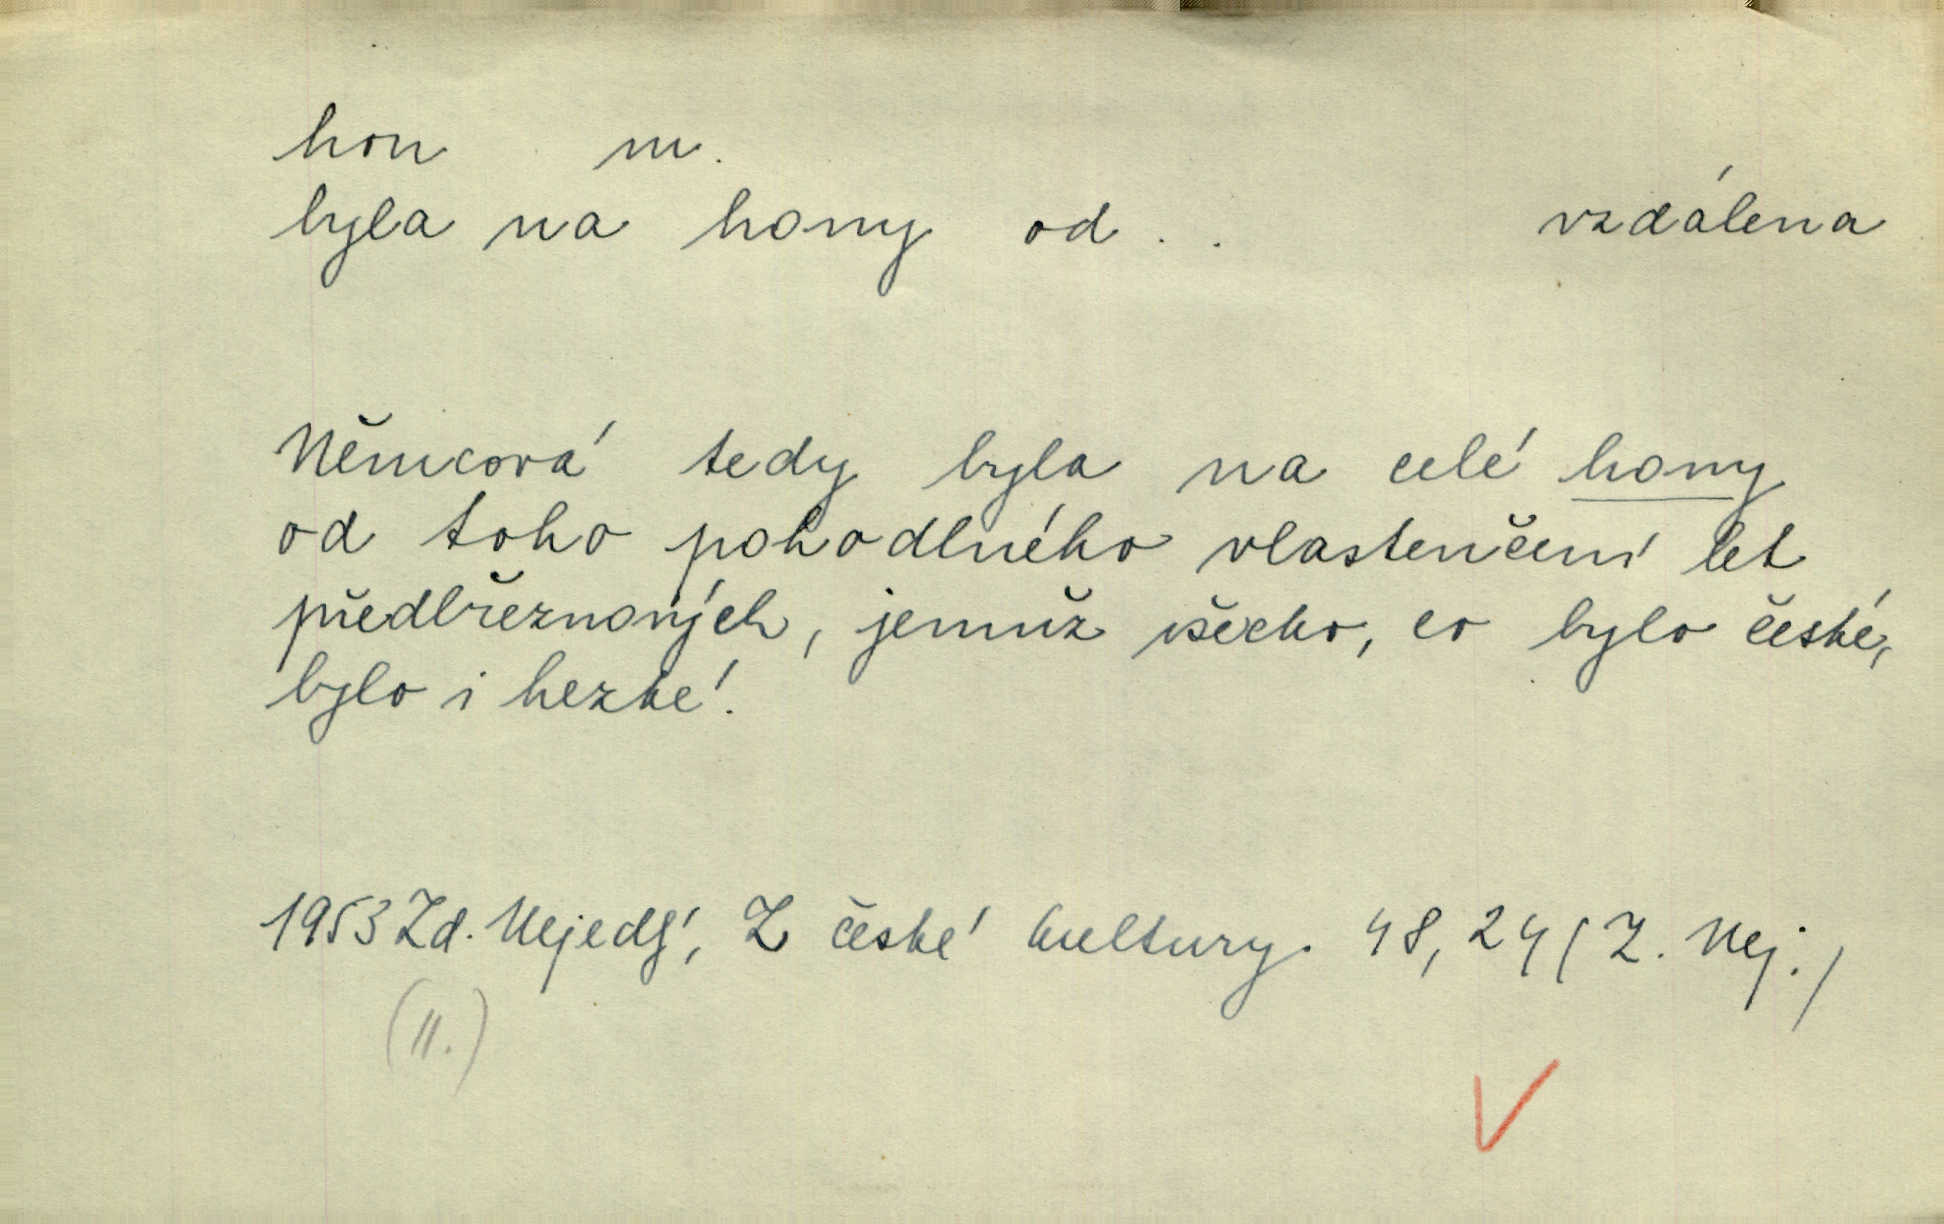 hon m.
byla na hony od . . vzdálena
Němcová tedy byla na celé hony
od toho pohodlného vlastenčení let
předbřeznových, jemuž všecko, co bylo české,
bylo i hezké.
1953 Zd. Nejedlý, Z české kultury. 48, 24 (Z. Nej.)
(II.)